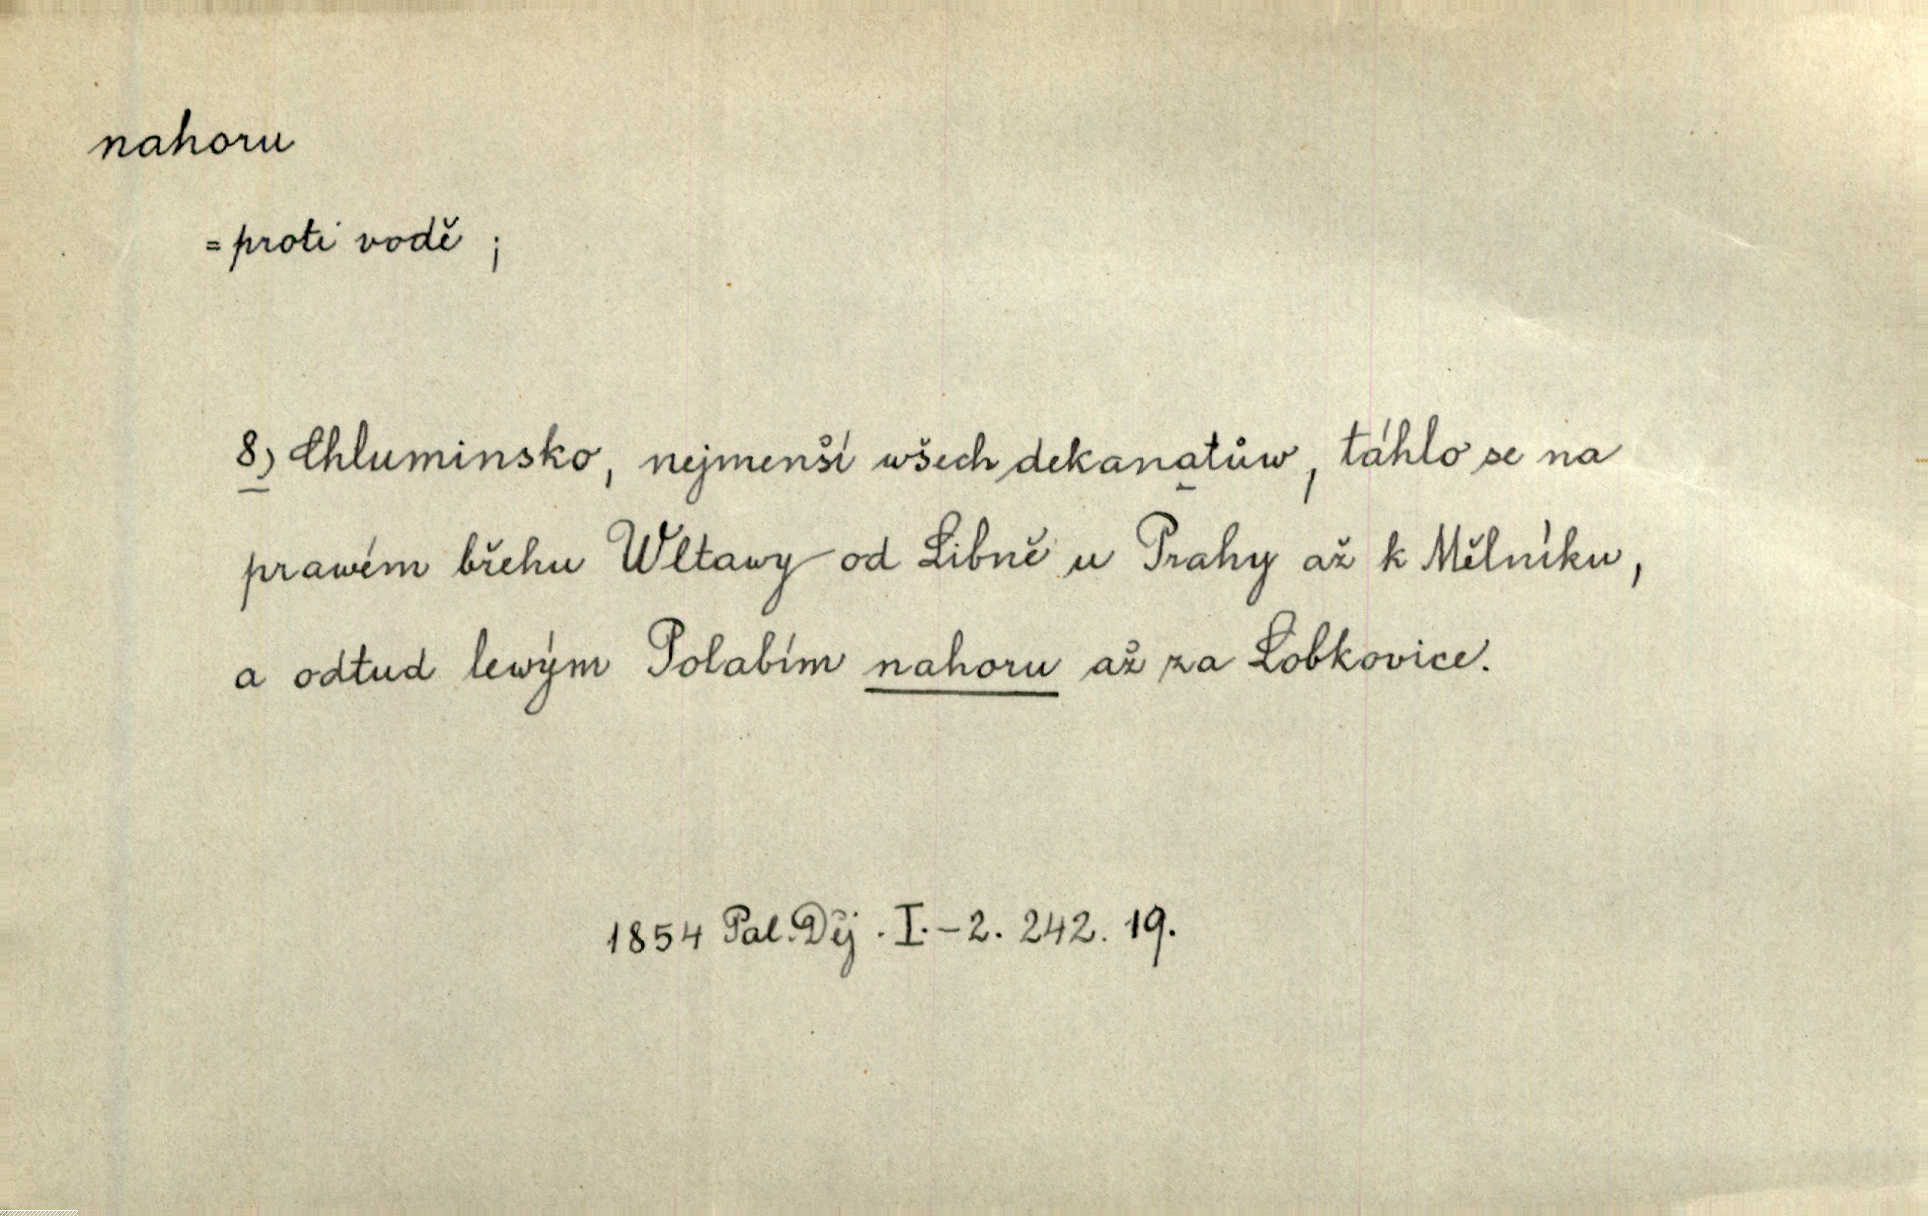 nahoru
= proti vodě ;
8) Chluminsko, nejmenší wšech dekanatůw, táhlo se na
prawém břehu Wltawy od Libně u Prahy až k Mělníku,
a odtud lewým Polabím nahoru až za Lobkovice.
1854 Pal. Děj. I.-2. 242. 19.